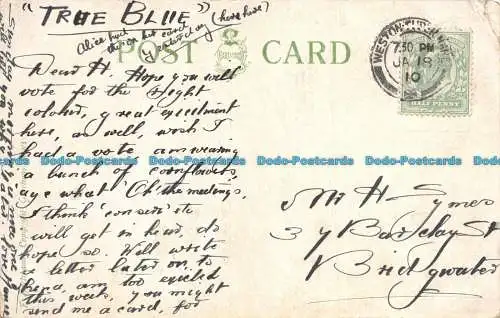 "TRUE BLUE"
Alice had
this on hat card
yesterday (here here)
POST CARD
Dear H. Hope you will
vote for the right
colour, great excitment
here, as well, wish I
had a vote am wearing
a bunch of cornflowers,
aye what! Oh! the meetings,
I think 'conser' etc
will get in here, do
hope so. Well write
a letter later on to
am too excited
this week, you might
send me a card, for
WESTON-SUPER-MARE
7.30 PM
JA 18
10
HALF PENNY
Mr H Symes
37 Barclay St
Bridgwater
Dodo-Postcards Dodo-Postcards Dodo-Postcards